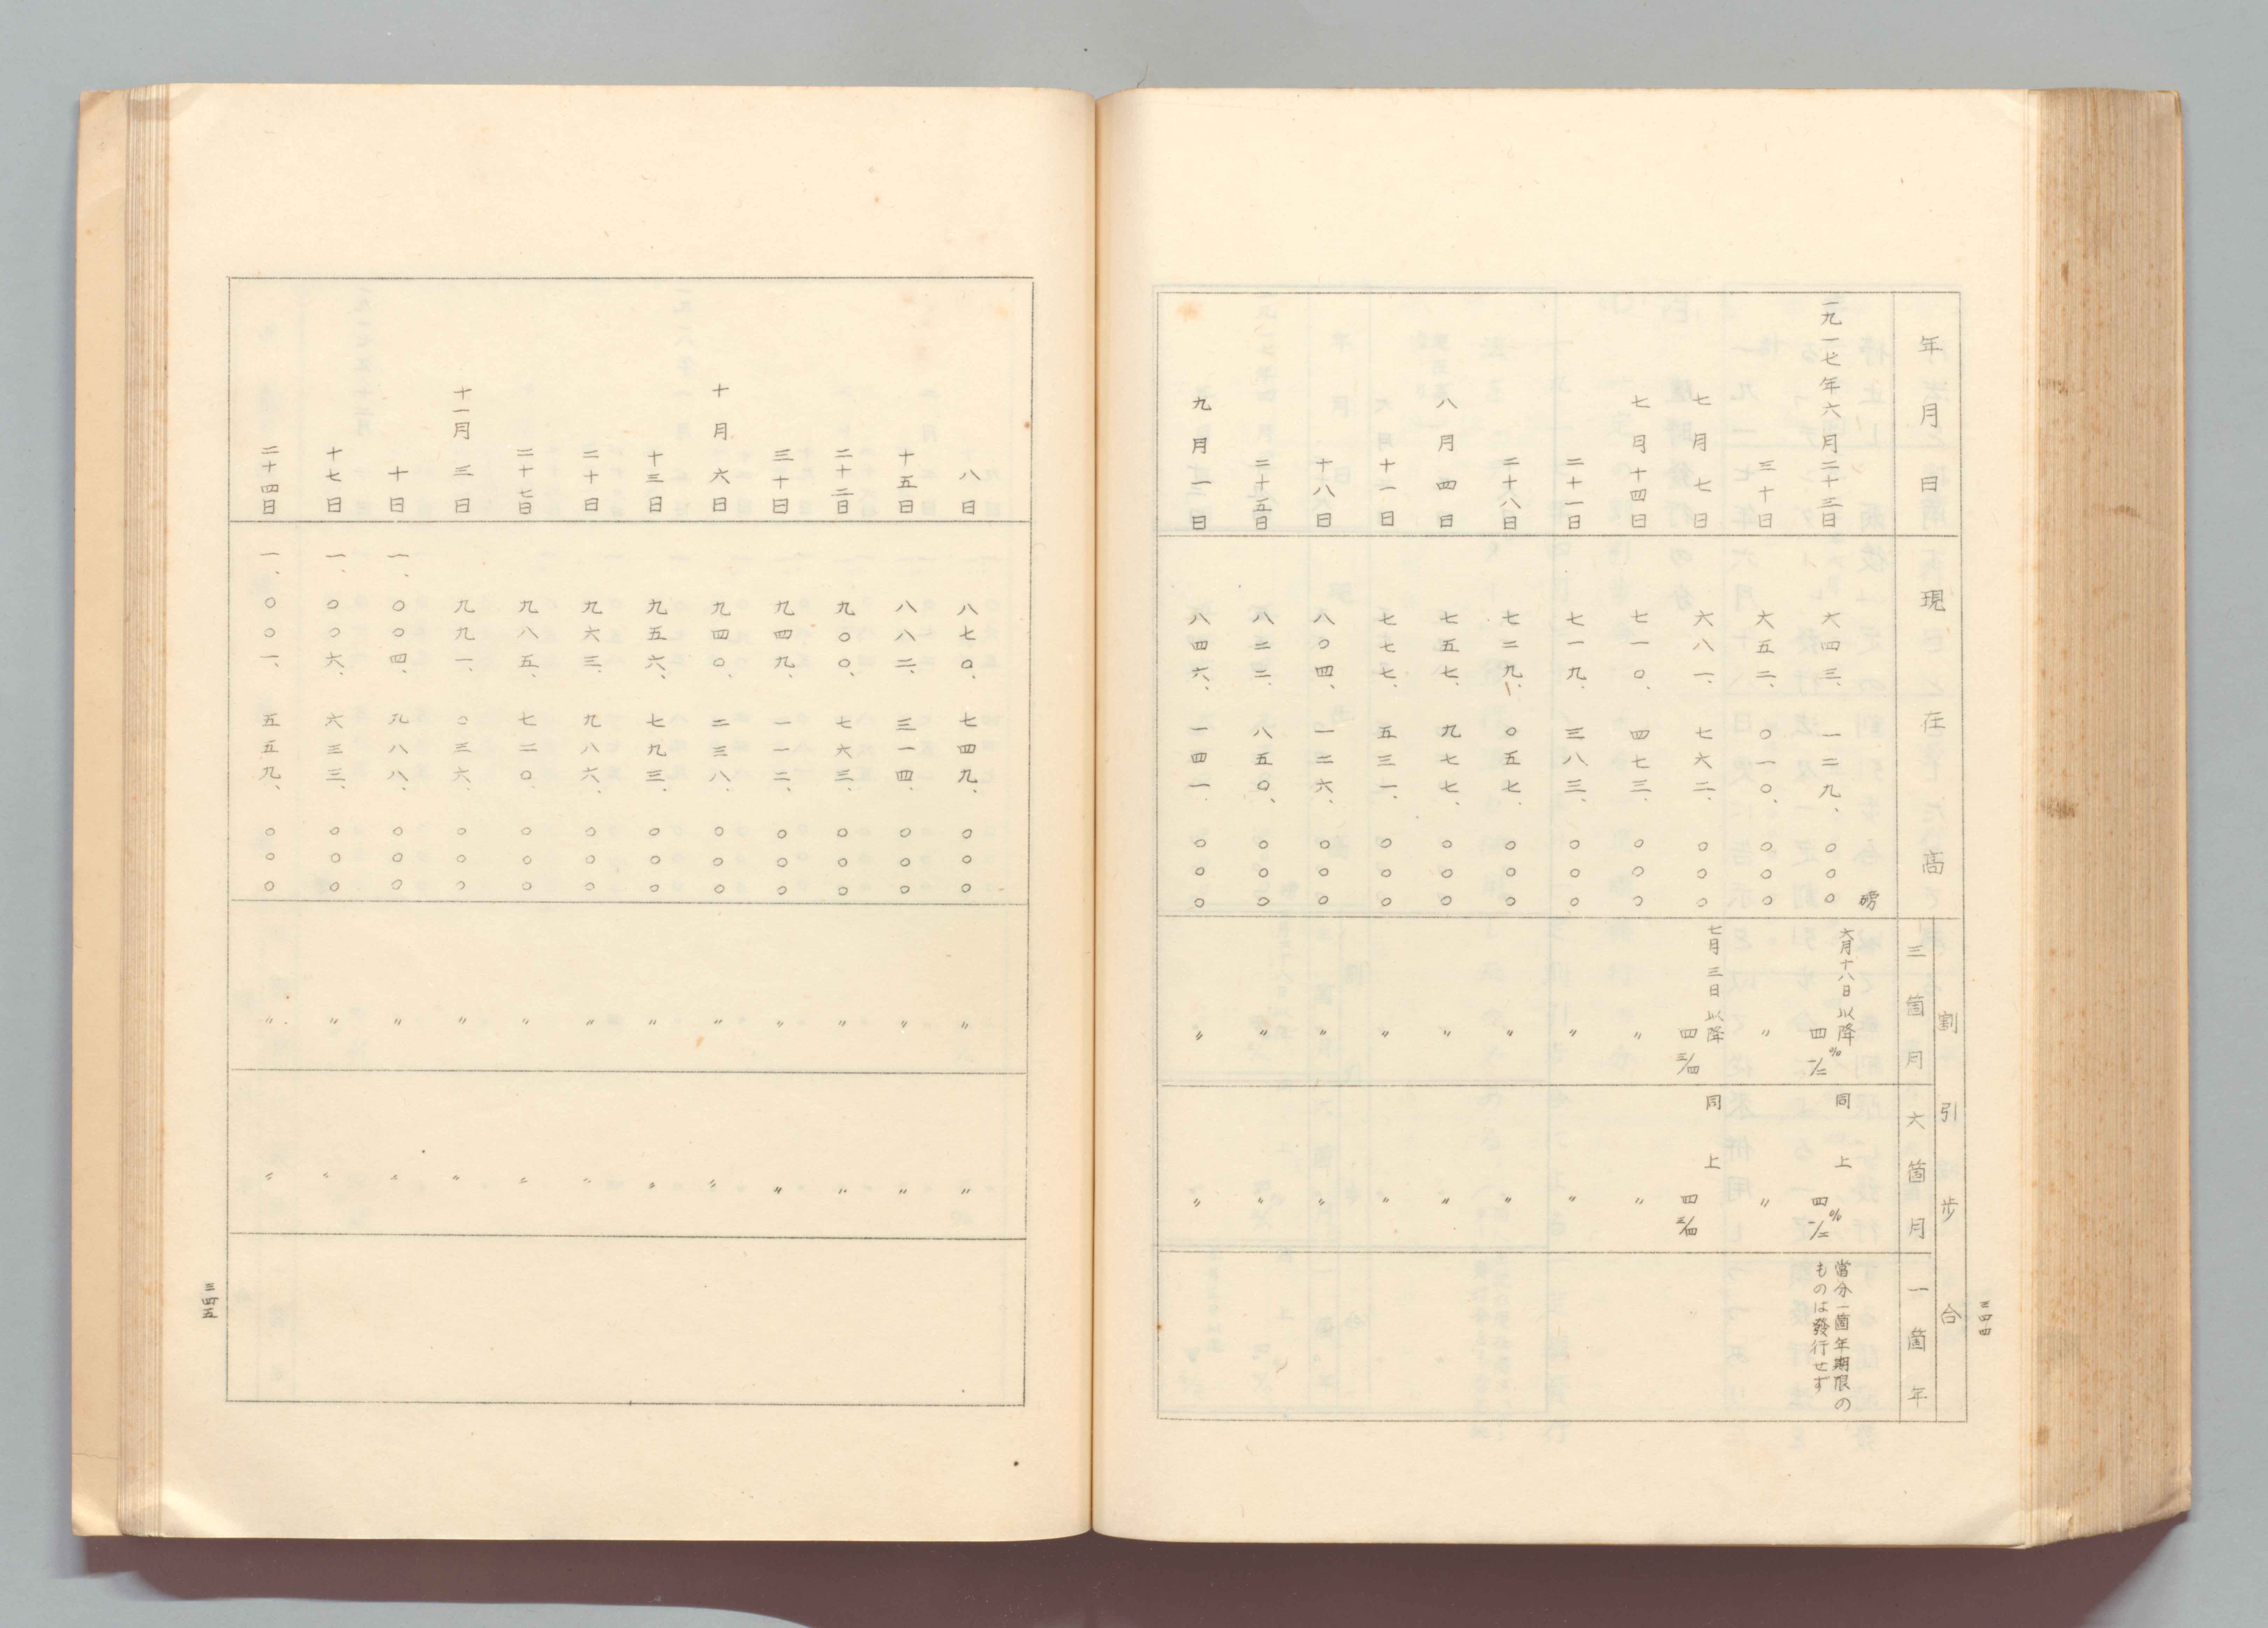 三四四
年月日
現在高
割引步合
三箇月
六箇月
一箇年
磅
一九一七年六月二十三日
六四三、一二九、〇〇〇
六月十八日以降
四%一/二
同上
四%一/二
當分一箇年期限の
ものは發行せず
三十日
六五二、〇一〇、〇〇〇
〃
〃
七月七日
六八一、七六二、〇〇〇
七月三日以降
四三/四
同上
四三/四
七月十四日
七一〇、四七三、〇〇〇
〃
〃
二十一日
七一九、三八三、〇〇〇
〃
〃
二十八日
七二九、〇五七、〇〇〇
〃
〃
八月四日
七五七、九七七、〇〇〇
〃
〃
十一日
七七七、五三一、〇〇〇
〃
〃
十八日
八〇四、一二六、〇〇〇
〃
〃
二十五日
八二二、八五〇、〇〇〇
〃
〃
九月一日
八四六、一四一、〇〇〇
〃
〃
八日
八七〇、七四九、〇〇〇
〃
〃
十五日
八八二、三一四、〇〇〇
〃
〃
二十二日
九〇〇、七六三、〇〇〇
〃
〃
三十日
九四九、一一二、〇〇〇
〃
〃
十月六日
九四〇、二三八、〇〇〇
〃
〃
十三日
九五六、七九三、〇〇〇
〃
〃
二十日
九六三、九八六、〇〇〇
〃
〃
二十七日
九八五、七二〇、〇〇〇
〃
〃
十一月三日
九九一、〇三六、〇〇〇
〃
〃
十日
一、〇〇四、九八八、〇〇〇
〃
〃
十七日
一、〇〇六、六三三、〇〇〇
〃
〃
二十四日
一、〇〇一、五五九、〇〇〇
〃
〃
三四五